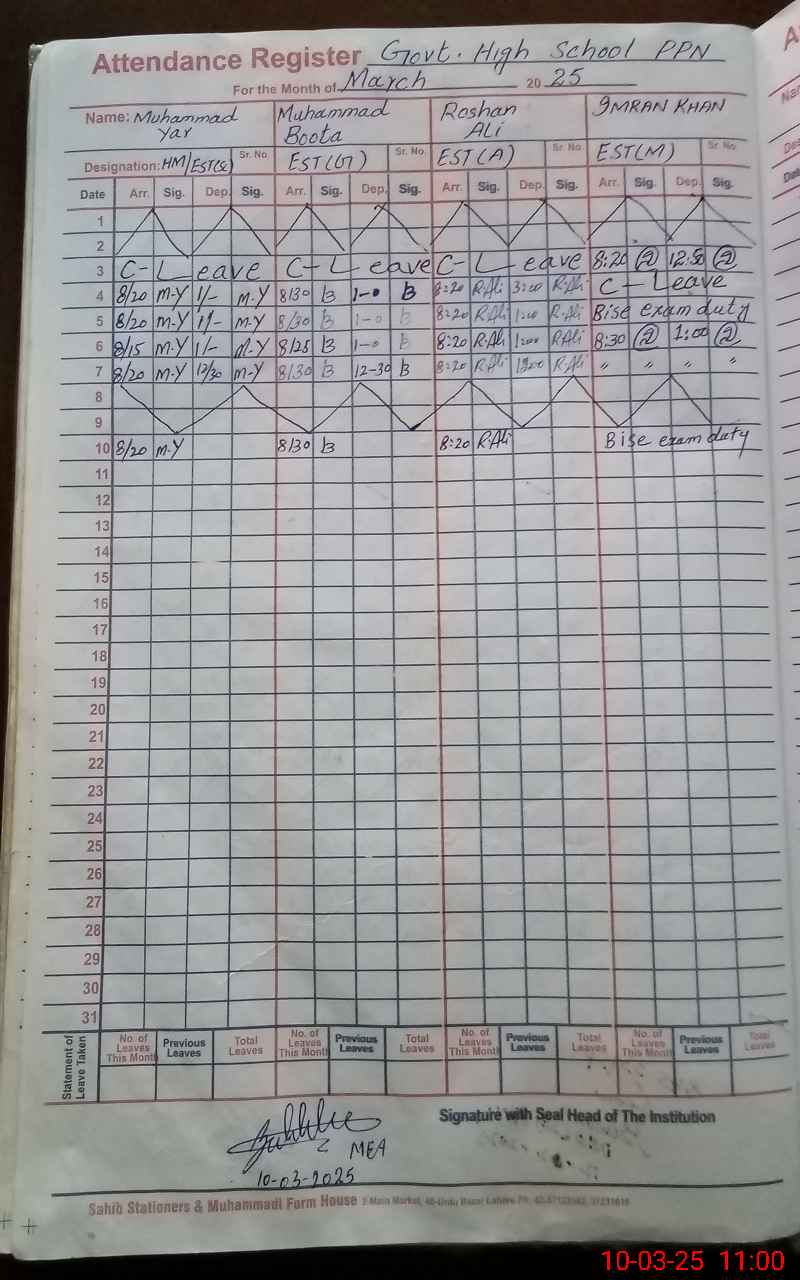 Attendance Register Govt. High School PPN
For the Month of March 2025
Name: Muhammad Yar Muhammad Boota Roshan Ali IMRAN KHAN
Designation: HM/EST(S) Sr. No. EST(G) Sr. No. EST(A) Sr. No. EST(M) Sr. No.
Date Arr. Sig. Dep. Sig. Arr. Sig. Dep. Sig. Arr. Sig. Dep. Sig. Arr. Sig. Dep. Sig.
1
2
3 C-Leave C-Leave C-Leave 8:20
4 8/20 M-Y 1/- M-Y 8/30 B 1-0 B 8:20 R.Ali 3:00 R.Ali C-Leave
5 8/20 M-Y 1/- M-Y 8/30 B 1-0 B 8:20 R.Ali 1:00 R.Ali Bise exam duty
6 8/15 M-Y 1/- M-Y 8/25 B 1-0 B 8:20 R.Ali 1:00 R.Ali 8:30 1:00
7 8/20 M-Y 12/30 M-Y 8/30 B 12-30 B 8:20 R.Ali R.Ali " " " "
8
9
10 8/20 M-Y 8/30 B 8:20 R.Ali Bise exam duty
11
12
13
14
15
16
17
18
19
20
21
22
23
24
25
26
27
28
29
30
31
Statement of Leave Taken No. of Leaves This Month Previous Leaves Total Leaves No. of Leaves This Month Previous Leaves Total Leaves No. of Leaves This Month Previous Leaves Total Leaves No. of Leaves This Month Previous Leaves Total Leaves
Signature with Seal Head of The Institution
MEA
10-03-2025
Sahib Stationers & Muhammadi Form House 2-Main Market, 40-Urdu Bazar Lahore Ph:
10-03-25 11:00